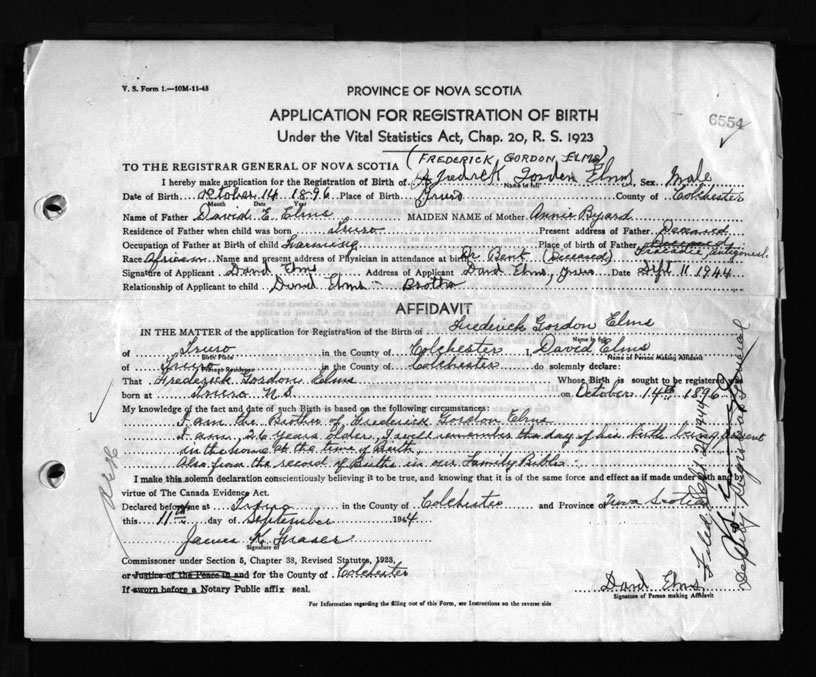 V. S. Form 1.—10M-11-43
PROVINCE OF NOVA SCOTIA
APPLICATION FOR REGISTRATION OF BIRTH
6554
Under the Vital Statistics Act, Chap. 20, R. S. 1923
(FREDERICK GORDON ELMS)
TO THE REGISTRAR GENERAL OF NOVA SCOTIA
I hereby make application for the Registration of Birth of Fredrick Gorden Elms, Sex Male
Name in full
Date of Birth October 14 1896 Place of Birth Truro County of Colchester
Month Date Year
Name of Father David E. Elms MAIDEN NAME of Mother Annie Byard
Residence of Father when child was born Truro Present address of Father Deceased
Occupation of Father at Birth of child Farming Place of birth of Father Deceased Tracadie, Antigonish
Race African Name and present address of Physician in attendance at birth Dr Bent (Deceased)
Signature of Applicant David Elms Address of Applicant David Elms, Truro Date Sept 11 1944
Relationship of Applicant to child David Elms — Brother
AFFIDAVIT
IN THE MATTER of the application for Registration of the Birth of Frederick Gordon Elms
Name in full
of Truro in the County of Colchester I, David Elms
Birth Place Name of Person Making Affidavit
of Truro in the County of Colchester do solemnly declare:
Present Residence
That Frederick Gordon Elms Whose Birth is sought to be registered was
born at Truro N.S. on October 14th 1896
My knowledge of the fact and date of such Birth is based on the following circumstances:
I am the Brother of Frederick Gordon Elms
I am 26 years older, I well remember the day of his birth being present
in the home at the time of Birth,
Also from the record of Births in our Family Bible.
I make this solemn declaration conscientiously believing it to be true, and knowing that it is of the same force and effect as if made under oath and by
virtue of The Canada Evidence Act.
Declared before me at Truro in the County of Colchester and Province of Nova Scotia
this 11th day of September 1944
James K Fraser
Signature of
Commissoner under Section 5, Chapter 38, Revised Statutes, 1923,
or Justice of the Peace in and for the County of Colchester
If sworn before a Notary Public affix seal.
David Elms
Signature of Person making Affidavit
For Information regarding the filling out of this Form, see Instructions on the reverse side
Filed Sept. 1944
Deputy Registrar General